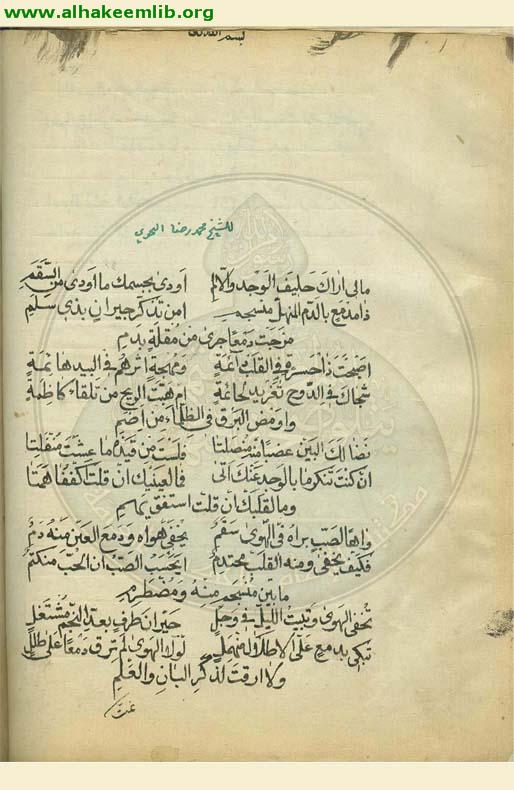 www.alhakeemlib.org
بسم الله
للشيخ محمد رضا النحوي
مالي اراك حليف الوجد والالم اودى بجسمك ما اودى من السقم
ذا مدمع بالدم المنهل منسجم امن تذكر جيران بذي سلم
مزجت دمعا جرى من مقلة بدم
اصبحت ذا حسرة في القلب دائمة ومهجة اثرهم في البيد هائمة
شجاك في الدوح تغريد لحائمة ام هبت الريح من تلقاء كاظمة
واومض البرق في الظلماء من اضم
نضا لك البين عضبا منه منصلتا فلست من قيده ما عشت منفلتا
ان كنت تنكر ما بالوجد عنك اتى فما لعينيك ان قلت اكففا همتا
وما لقلبك ان قلت استفق يهم
واها لصب براه في الهوى سقم يخفي هواه ودمع العين منه دم
فكيف يخفى ومنه القلب محتدم ايحسب الصب ان الحب منكتم
ما بين منسجم منه ومضطرم
تخفي الهوى وتبيت الليل في وجل حيران طرف بعد النجم مشتغل
تبكي بدمع على الاطلال منهمل لولا الهوى لم ترق دمعا على طلل
ولا ارقت لذكر البان والعلم